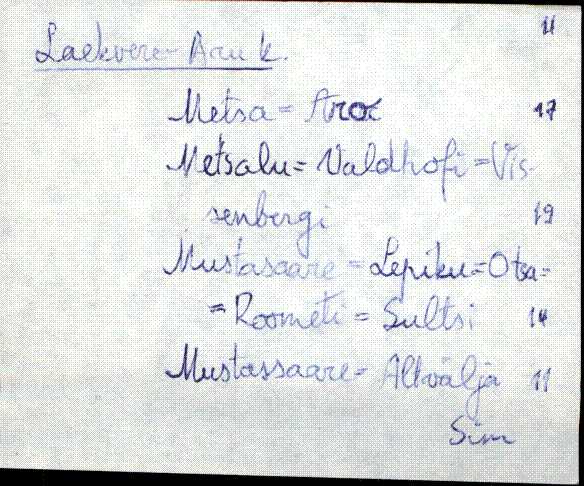 11
Laekvere - Aru k.
Metsa = Aroc 17
Metsalu = Valdhofi = Vis-
senbergi 19
Mustasaare = Lepiku = Otsa =
= Roometi = Sultsi 14
Mustassaare - Altvälja 11
Sim